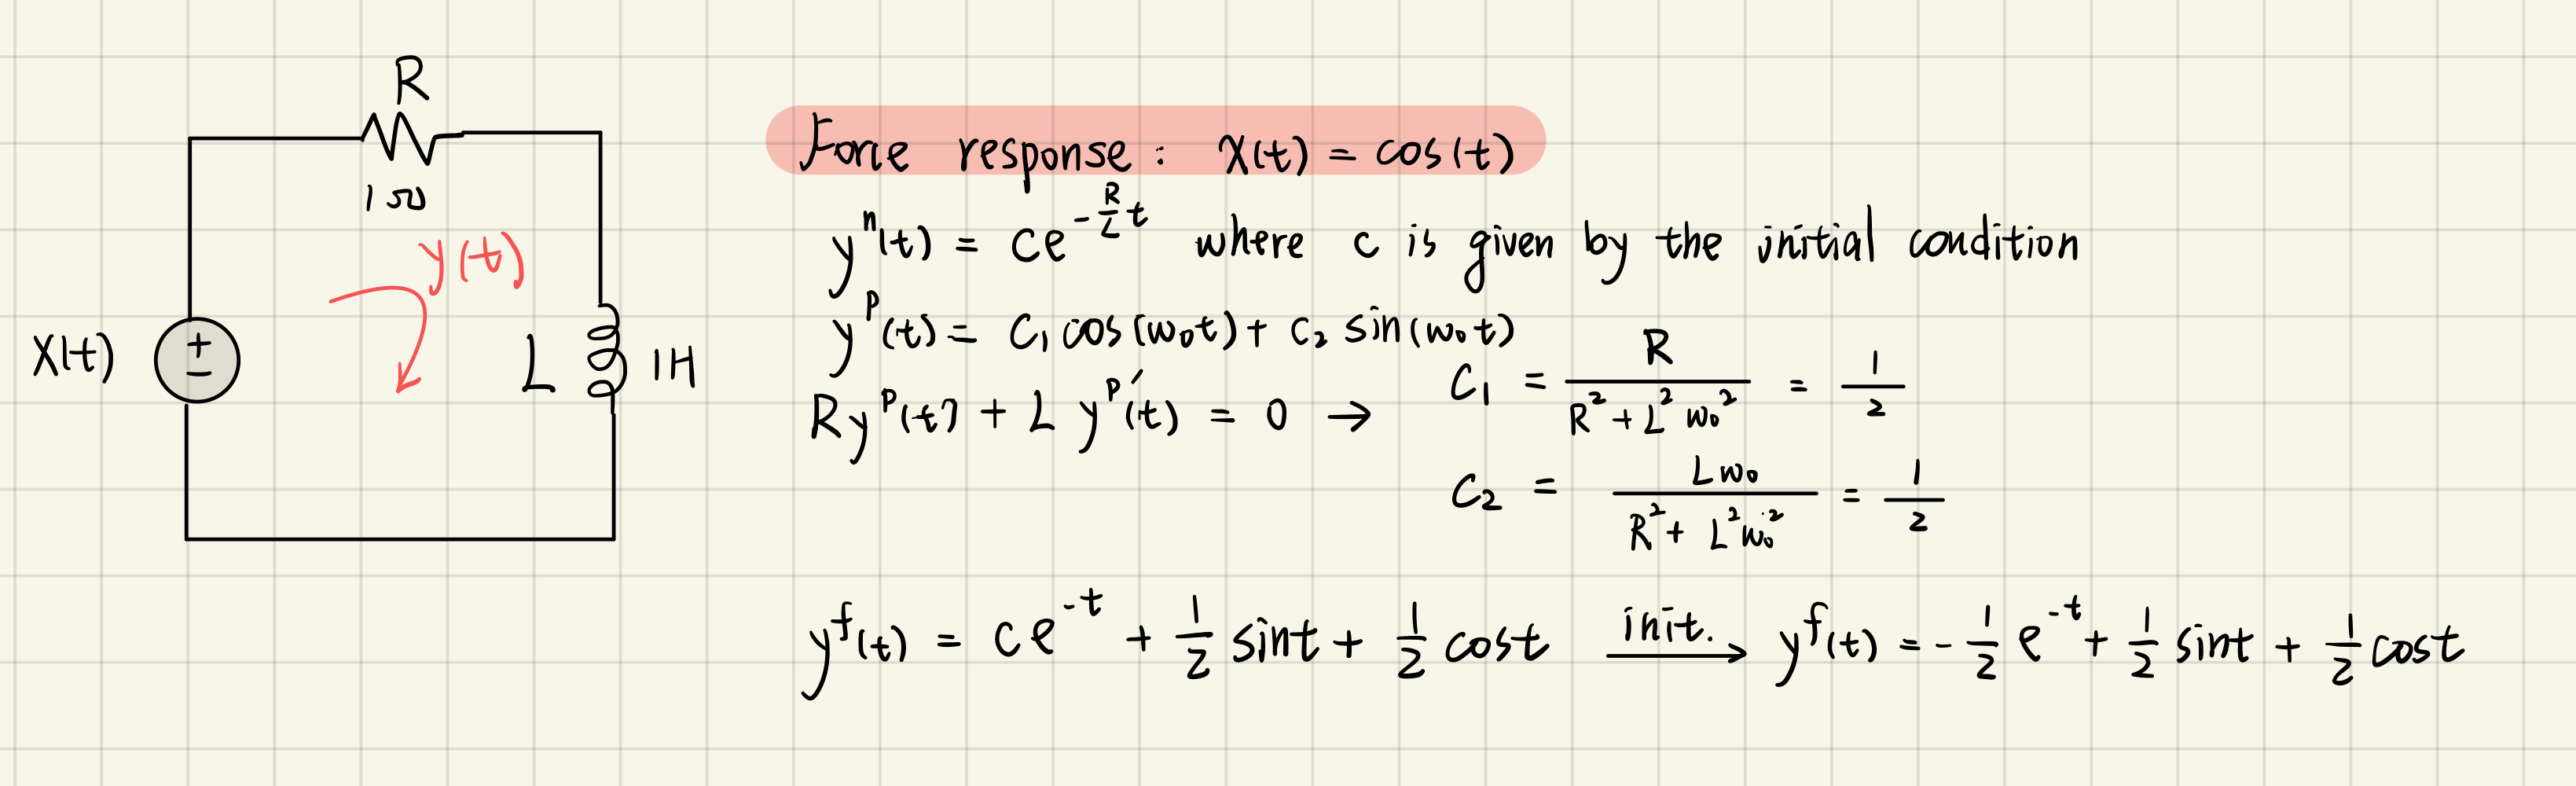 R
1Ω
y(t)
X(t)
L
1H
Force response: X(t) = cos(t)
yⁿ(t) = ce^{-\frac{R}{L}t} where c is given by the initial condition
y^p(t) = C₁cos(ω₀t) + C₂ sin(ω₀t)
Ry^p(t) + L y^p'(t) = 0 →
C₁ = \frac{R}{R²+L²ω₀²} = \frac{1}{2}
C₂ = \frac{Lω₀}{R²+L²ω₀²} = \frac{1}{2}
y^f(t) = ce^{-t} + \frac{1}{2} sint + \frac{1}{2} cost \xrightarrow{init.} y^f(t) = -\frac{1}{2} e^{-t} + \frac{1}{2} sint + \frac{1}{2} cost